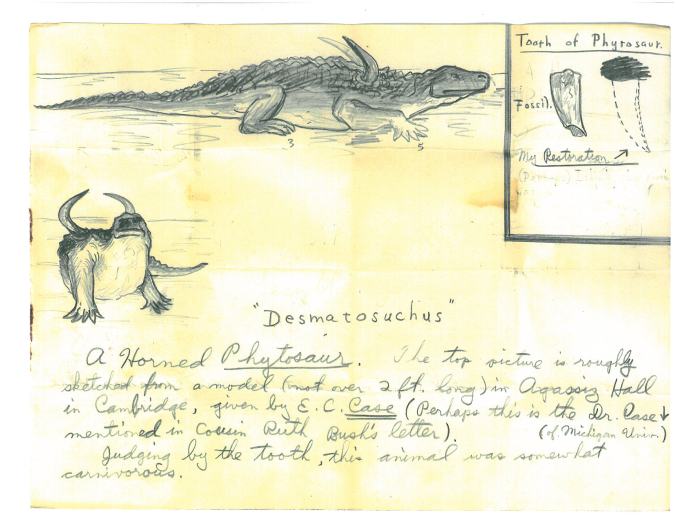 Tooth of Phytosaur.
Fossil.
My Restoration
3
5
"Desmatosuchus"
A Horned Phytosaur. The top picture is roughly
sketched from a model (not over 2 ft. long) in Agassiz Hall
in Cambridge, given by E. C. Case (Perhaps this is the Dr. Case
mentioned in Cousin Ruth Bush's letter). (of. Michigan Univ.)
Judging by the tooth, this animal was somewhat
carnivorous.